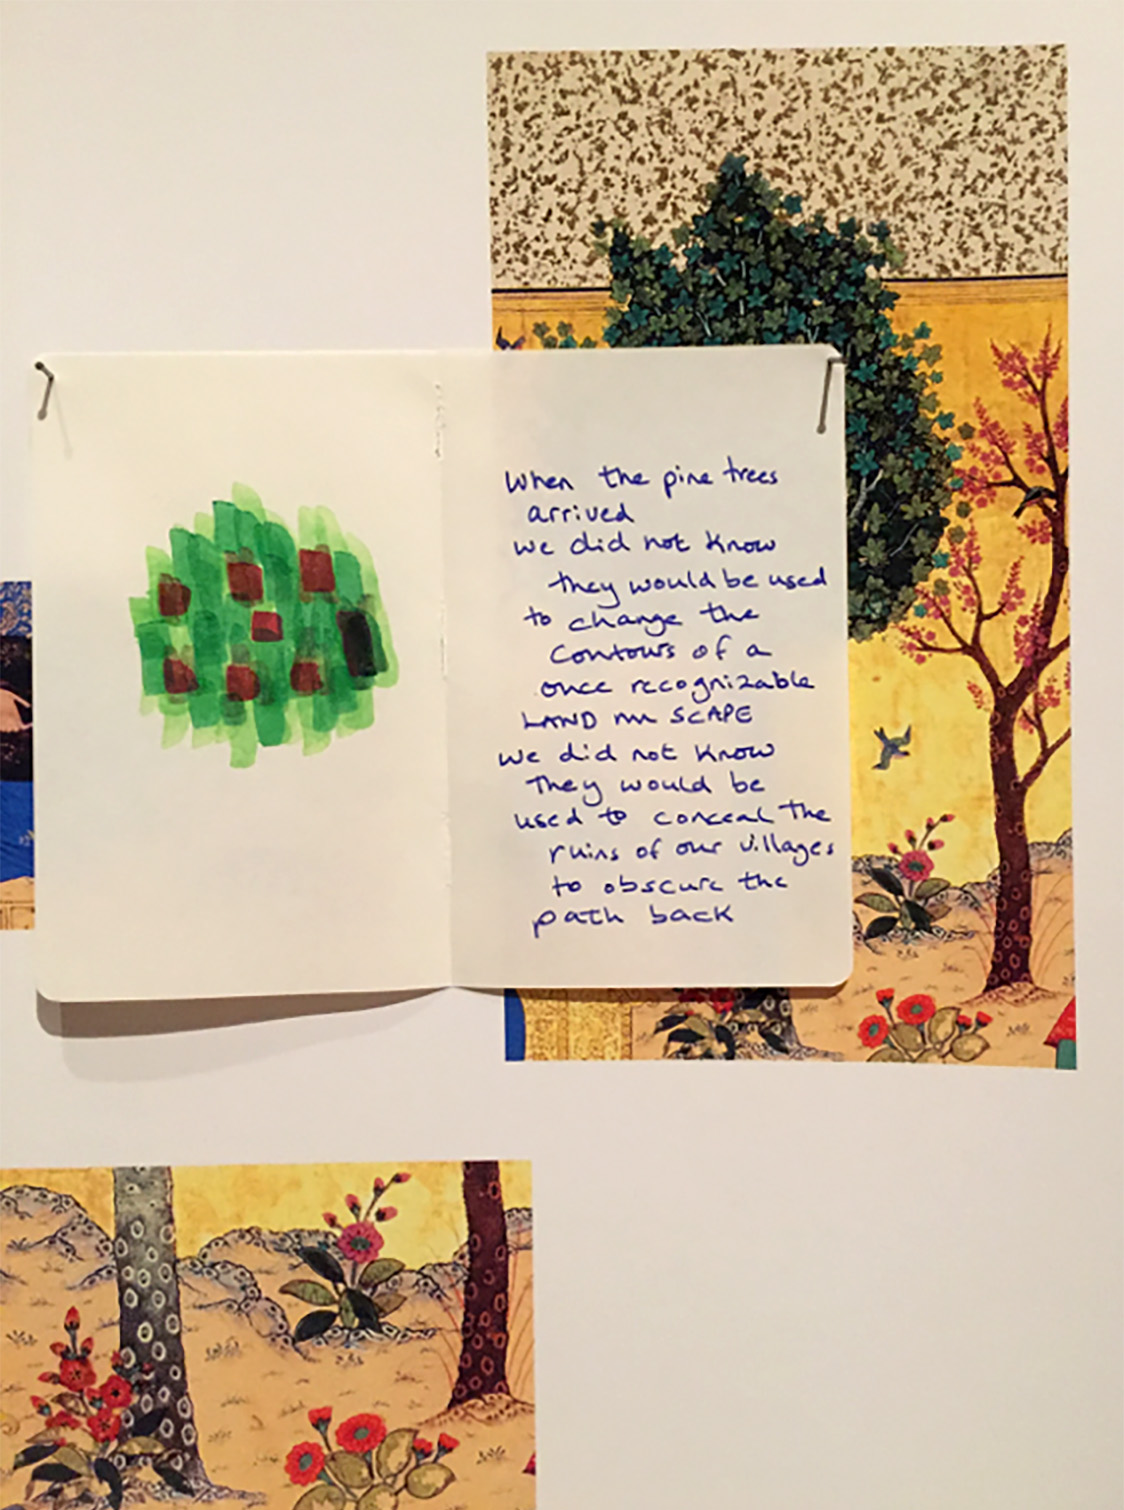 When the pine trees
arrived
we did not know
they would be used
to change the
contours of a
once recognizable
LAND SCAPE
we did not know
They would be
used to conceal the
ruins of our villages
to obscure the
path back